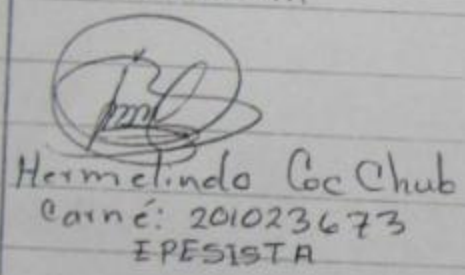 Hermelindo Coc Chub
Carné: 201023673
EPESISTA